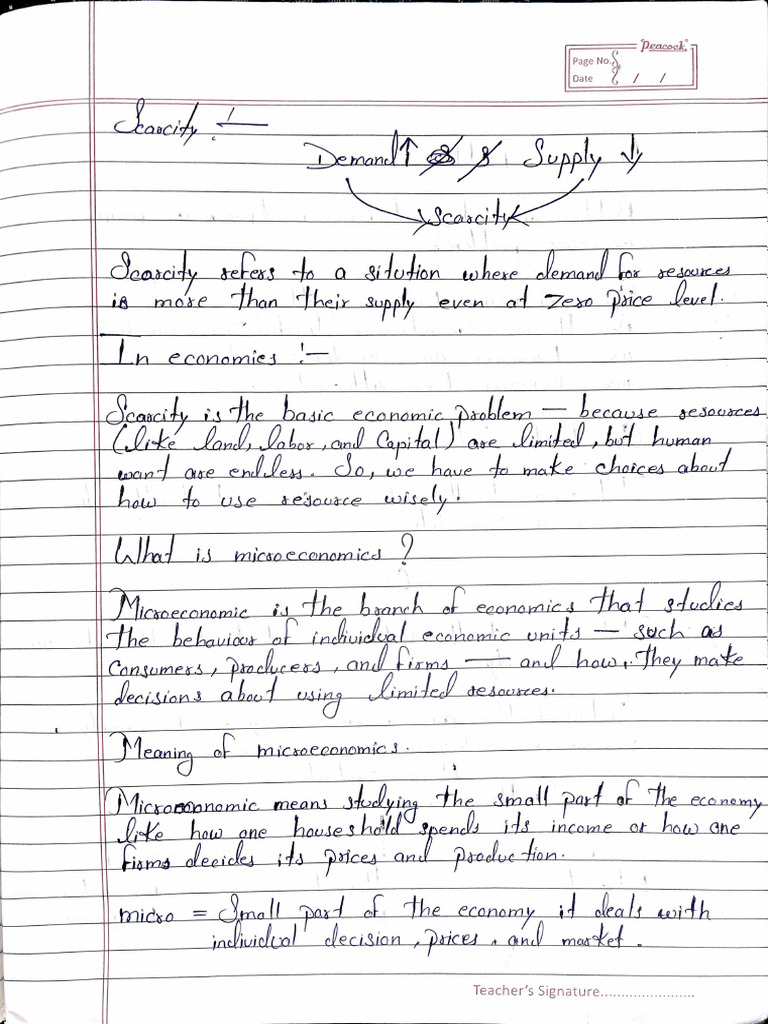 Peacock
Page No.
Date / /
Scarcity :-
Demand ↑ Supply ↓
Scarcity
Scarcity refers to a sitution where demand for resources
is more than their supply even at zero price level.
In economies :-
Scarcity is the basic economic problem — because resources
(like land, labor, and Capital) are limited, but human
want are endless. So, we have to make choices about
how to use resource wisely.
What is microeconomics ?
Microeconomic is the branch of economics that studies
the behaviour of individual economic units — such as
Consumers, producers, and firms — and how they make
decisions about using limited resources.
Meaning of microeconomics.
means studying the small part of the economy
like how one household spends its income or how one
firms decides its prices and production.
micro = Small part of the economy it deals with
individul decision, prices, and market.
Teacher's Signature.......................